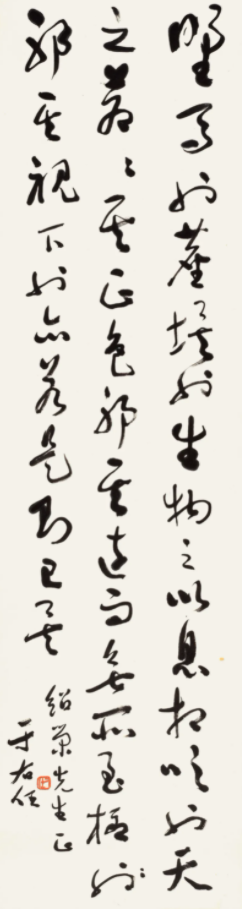 野馬也塵埃也生物之以息相吹也天
之蒼〻其正色邪其遠而無所至極也
邪其視下也亦若是則已矣
紹榮先生正
于右任